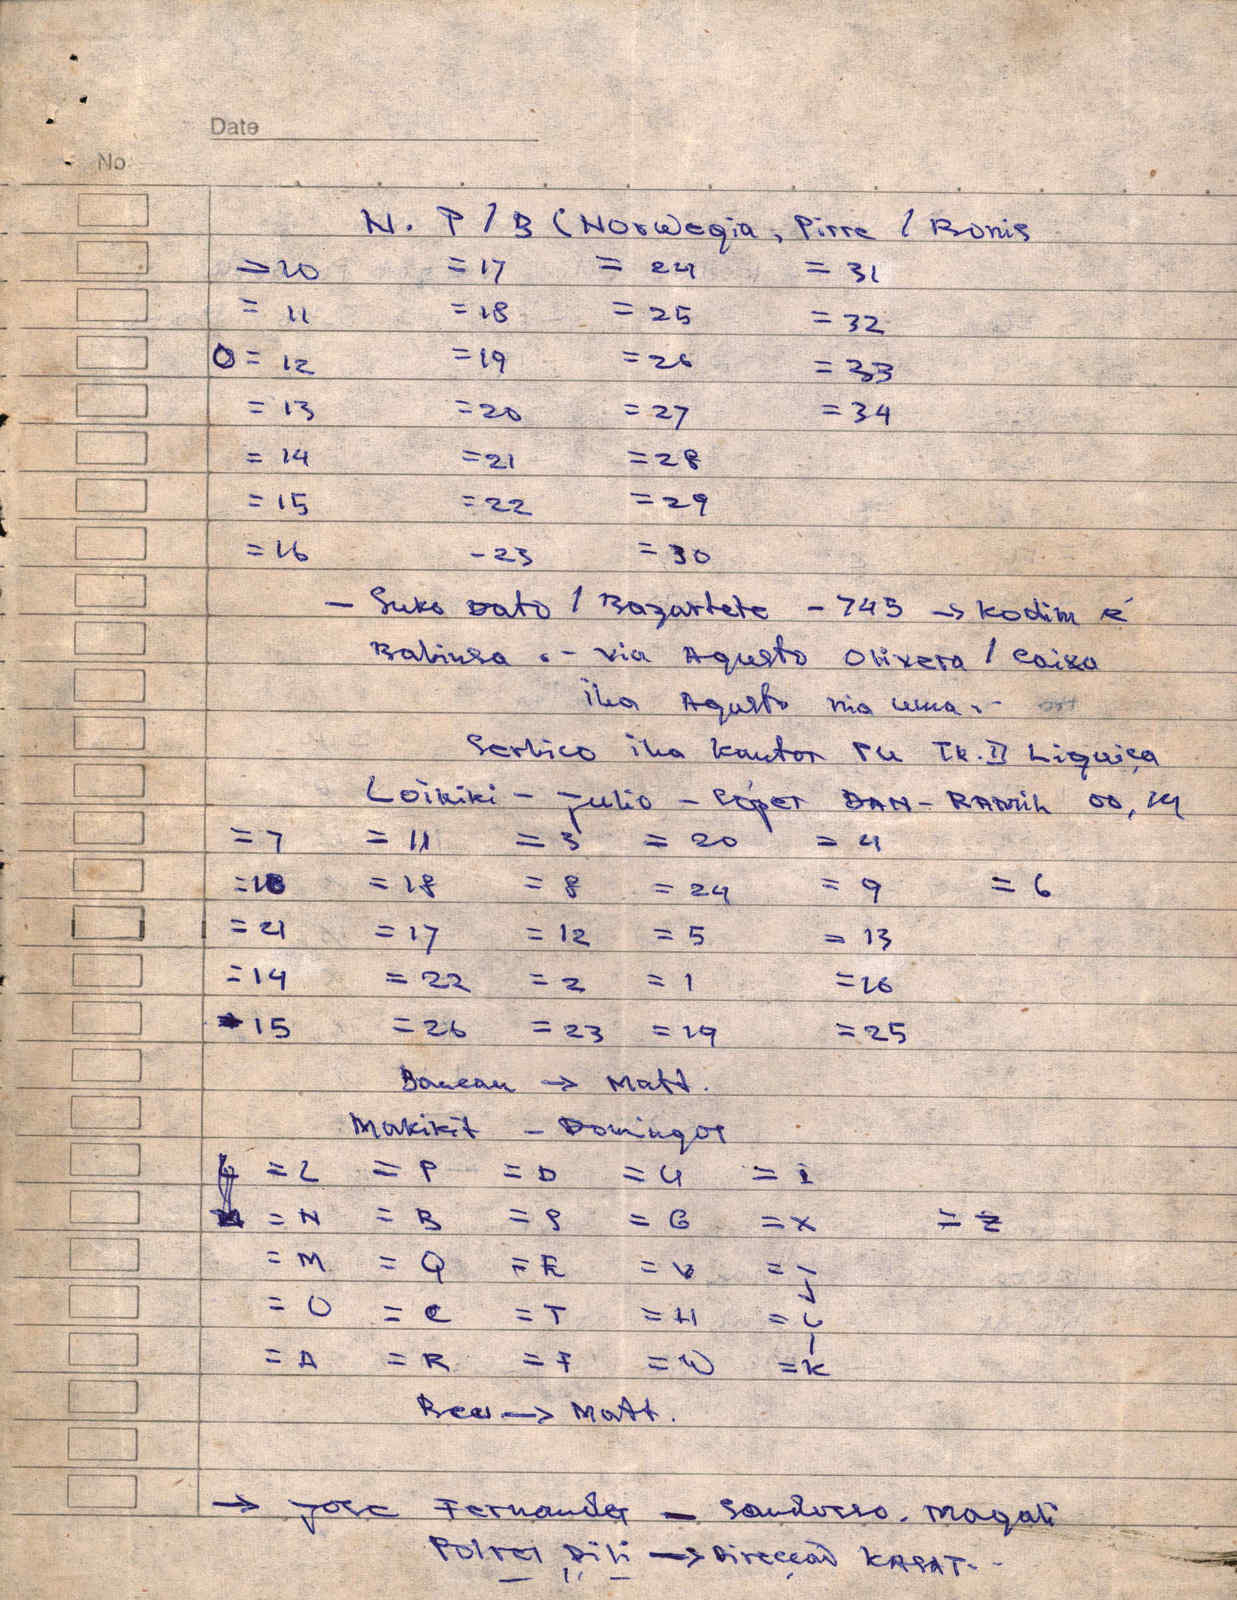 Date
No
N. P / B (Norwegia, Pirre / Bonis
=10 =17 =24 =31
= 11 =18 =25 =32
0= 12 =19 =26 =33
=13 =20 =27 =34
=14 =21 =28
=15 =22 =29
=16 -23 =30
- Suko Dato / Bazartete - 745 → Kodim é
Babinsa .- via Agusto Olivera / Caixa
iha Agusto nia uma.-
Serbico iha Kantor PU Tk.II Liquiça
Loikiki - Julio - DAN - RAMIL 00,
=7 = 11 = 3 = 20 = 4
=18 = 8 = 24 = 9 = 6
=21 =17 =12 =5 =13
=14 =22 =2 =1 =16
15 =26 =23 =19 =25
→ Matt.
Makikit - Domingos
=L =P =D =U =i
=N =B =S =G =X =Z
=M =Q =E =V =J
=O =C =T =H
=A =R =F =W =K
→ Matt.
→ Jose Fernandes - . Magati
Polres Dili → Direcçaõ KASAT.-